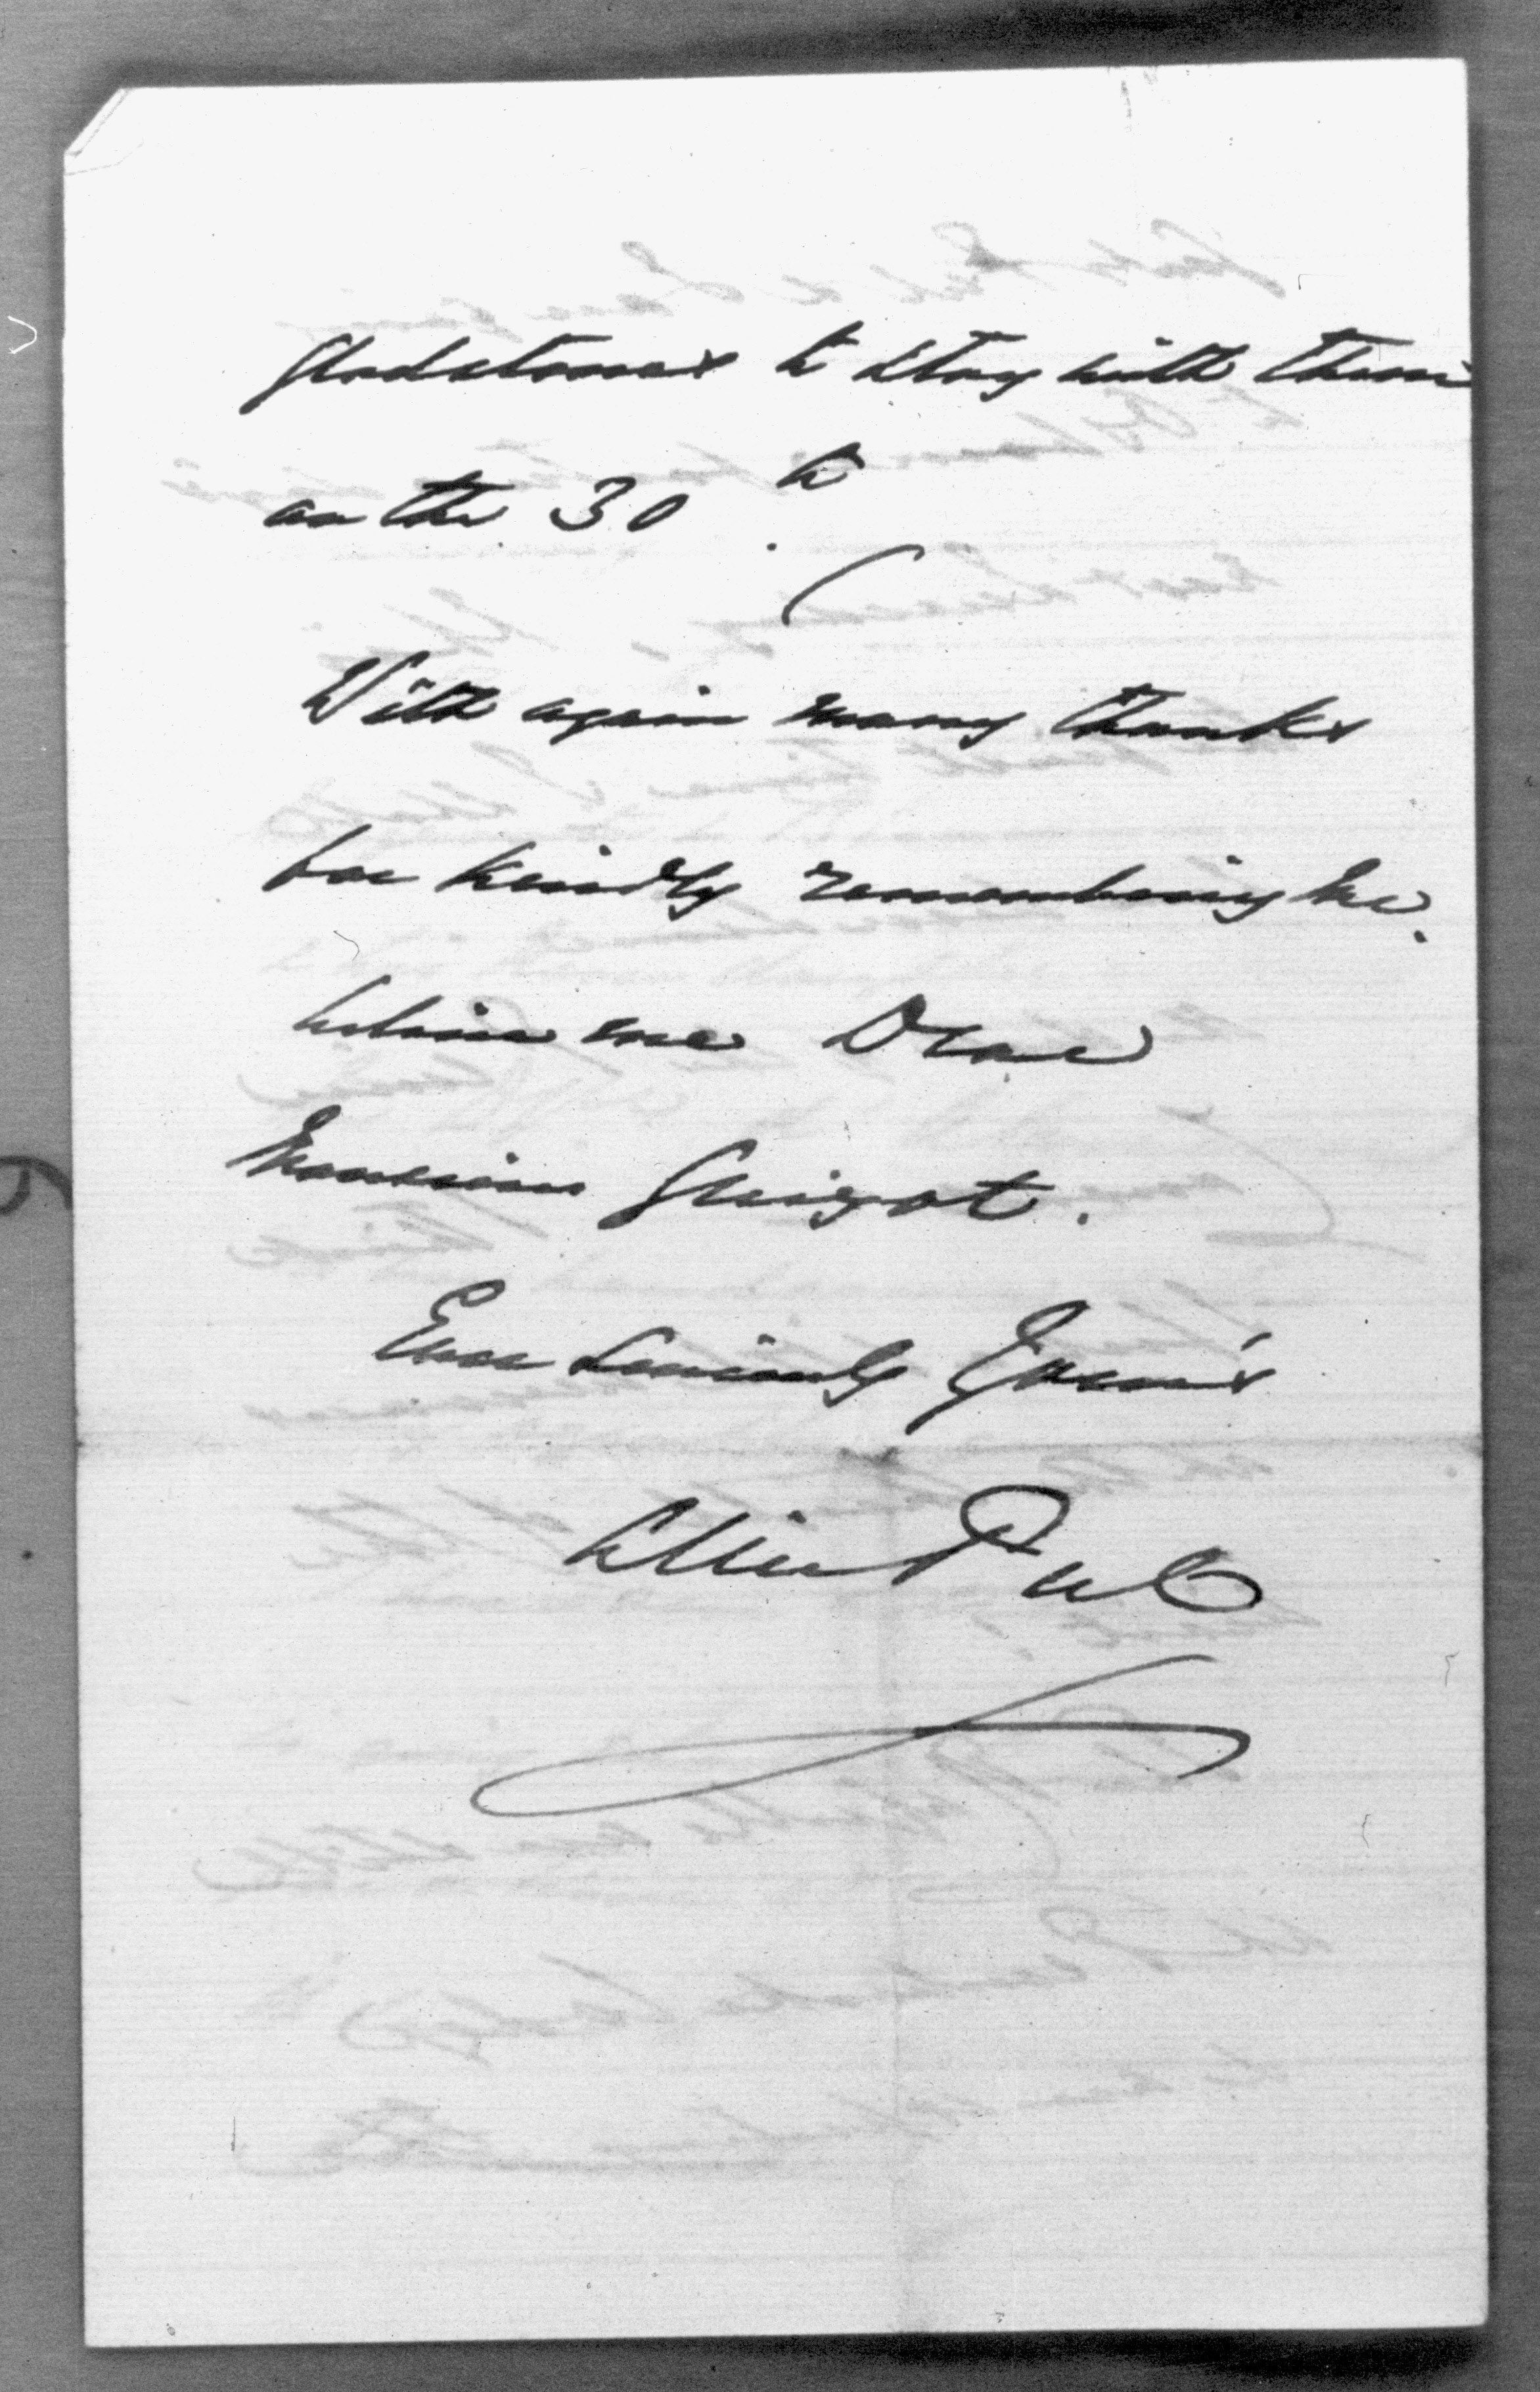 Gladstones to stay with them
on the 30th.
With again many thanks
for kindly remembering me.
believe me Dear
Monsieur Guizot.
Ever Sincerely Yours
Peel